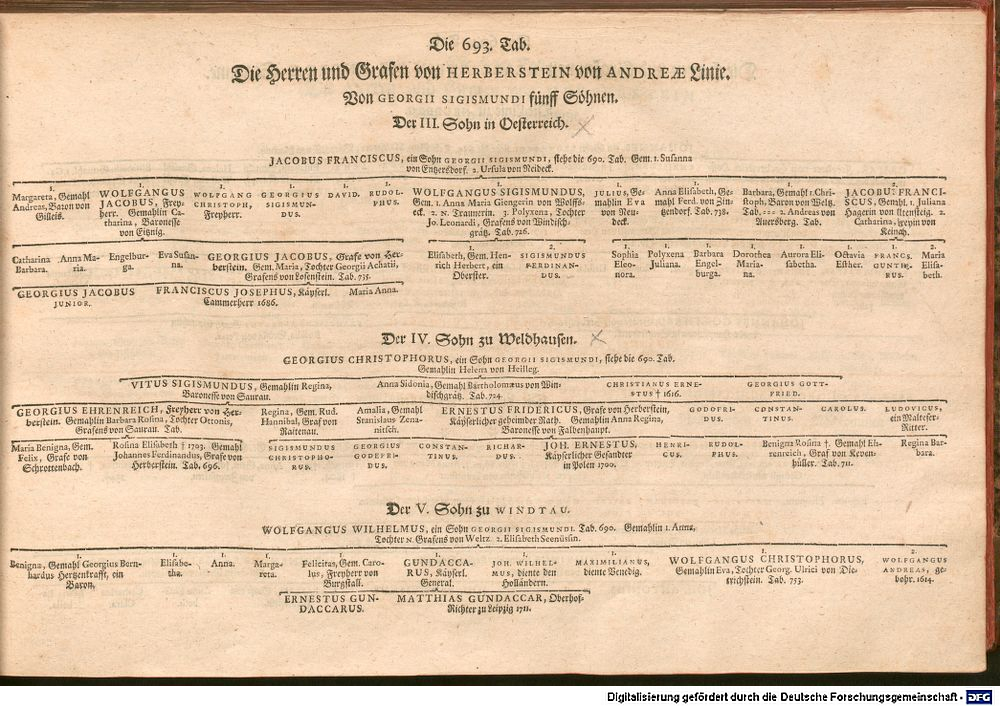 Die 693. Tab.
Die Herren und Grafen von HERBERSTEIN von ANDREÆ Linie.
Von GEORGII SIGISMUNDI fünff Söhnen.
Der III. Sohn in Oesterreich.
JACOBUS FRANCISCUS, ein Sohn GEORGII SIGISMUNDI, siehe die 690. Tab. Gem. 1. Susanna
von Entzersdorf. 2. Ursula von Neideck.
1.
Margareta, Gemahl
Andreas, Baron von
Gilleis.
1.
WOLFGANGUS
JACOBUS, Frey-
herr. Gemahlin Ca-
tharina, Baronesse
von Eitznig.
1.
WOLFGANG
CHRISTOPH,
Freyherr.
1.
GEORGIUS
SIGISMUN-
DUS.
1.
DAVID.
1.
RUDOL-
PHUS.
1.
WOLFGANGUS SIGISMUNDUS,
Gem. 1. Anna Maria Giengerin von Wolffs-
eck. 2. N. Traunerin. 3. Polyxena, Tochter
Jo. Leonardi, Grafens von Windisch-
grätz. Tab. 726.
1.
JULIUS, Ge-
mahlin Eva
von Neu-
deck.
1.
Anna Elisabeth, Ge-
mahl Ferd. von Zin-
tzendorf. Tab. 738.
1.
Barbara, Gemahl 1. Chri-
stoph, Baron von Weltz.
Tab. === 2. Andreas von
Auersberg. Tab.
2.
JACOBUS FRANCI-
SCUS, Gemahl. 1. Juliana
Hagerin von Altensteig. 2.
Catharina, von
Reinach.
Catharina
Barbara.
Anna Ma-
ria.
Engelbur-
ga.
Eva Susan-
na.
GEORGIUS JACOBUS, Grafe von Her-
berstein. Gem. Maria, Tochter Georgii Achatii,
Grafens von Losenstein. Tab. 735.
1.
Elisabeth, Gem. Hen-
rich Herbert, ein
Obrister.
2.
SIGISMUNDUS
FERDINAN-
DUS.
1.
Sophia
Eleo-
nora.
1.
Polyxena
Juliana.
1.
Barbara
Engel-
burga.
1.
Dorothea
Maria-
na.
1.
Aurora Eli-
sabetha.
1.
Octavia
Esther.
1.
FRANCS.
GUNTHE-
RUS.
2.
Maria
Elisa-
beth.
GEORGIUS JACOBUS
JUNIOR.
FRANCISCUS JOSEPHUS, Käyserl.
Cammerherr 1686.
Maria Anna.
Der IV. Sohn zu Weldhausen.
GEORGIUS CHRISTOPHORUS, ein Sohn GEORGII SIGISMUNDI, siehe die 690. Tab.
Gemahlin Helena von Heilleg.
VITUS SIGISMUNDUS, Gemahlin Regina,
Baronesse von Saurau.
Anna Sidonia, Gemahl Bartholomæus von Win-
dischgrätz. Tab. 724.
CHRISTIANUS ERNE-
STUS † 1616.
GEORGIUS GOTT-
FRIED.
GEORGIUS EHRENREICH, Freyherr von Her-
berstein. Gemahlin Barbara Rosina, Tochter Ottonis,
Grafens von Saurau. Tab.
Regina, Gem. Rud.
Hannibal, Graf von
Raitenau.
Amalia, Gemahl
Stanislaus Zena-
nitsch.
ERNESTUS FRIDERICUS, Grafe von Herberstein,
Käyserlicher geheimder Rath. Gemahlin Anna Regina,
Baronesse von Faldenhaupt.
GODOFRI-
DUS.
CONSTAN-
TINUS.
CAROLUS.
LUDOVICUS,
ein Malteser-
Ritter.
Maria Benigna, Gem.
Felix, Grafe von
Schrottenbach.
Rosina Elisabeth † 1703. Gemahl
Johannes Ferdinandus, Grafe von
Herberstein. Tab. 696.
SIGISMUNDUS
CHRISTOPHO-
RUS.
GEORGIUS
GODEFRI-
DUS.
CONSTAN-
TINUS.
RICHAR-
DUS.
JOH. ERNESTUS,
Käyserlicher Gesandter
in Polen 1700.
HENRI-
CUS.
RUDOL-
PHUS.
Benigna Rosina †. Gemahl Eh-
renreich, Graf von Keven-
hüller. Tab. 711.
Regina Bar-
bara.
Der V. Sohn zu WINDTAU.
WOLFGANGUS WILHELMUS, ein Sohn GEORGII SIGISMUNDI. Tab. 690. Gemahlin 1. Anna,
Tochter N. Grafens von Weltz 2. Elisabeth Seenüssin.
Benigna, Gemahl Georgius Bern-
hardus Hertzenkrafft, ein
Baron.
1.
Elisabe-
tha.
1.
Anna.
1.
Marga-
reta.
1.
Felicitas, Gem. Caro-
lus, Freyherr von
Burgstall.
1.
GUNDACCA-
RUS, Käyserl.
General.
1.
JOH. WILHEL-
MUS, diente den
Holländern.
1.
MAXIMILIANUS,
diente Venedig.
1.
WOLFGANGUS CHRISTOPHORUS,
Gemahlin Eva, Tochter Georg. Ulrici von Die-
trichstein. Tab. 753.
2.
WOLFGANGUS
ANDREAS, ge-
bohr. 1614.
ERNESTUS GUN-
DACCARUS.
MATTHIAS GUNDACCAR, Oberhof-
Richter zu Leipzig 1711.
Digitalisierung gefördert durch die Deutsche Forschungsgemeinschaft - DFG